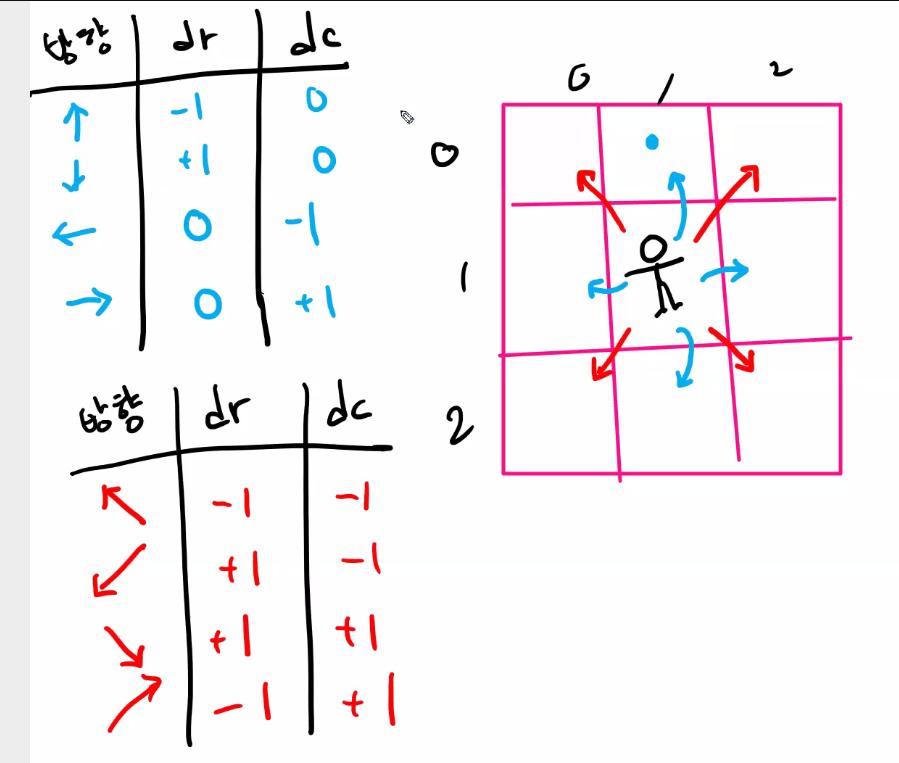 방향 dr dc
↑ -1 0
↓ +1 0
← 0 -1
→ 0 +1
방향 dr dc
↖ -1 -1
↙ +1 -1
↘ +1 +1
↗ -1 +1
0 1 2
0
1
2